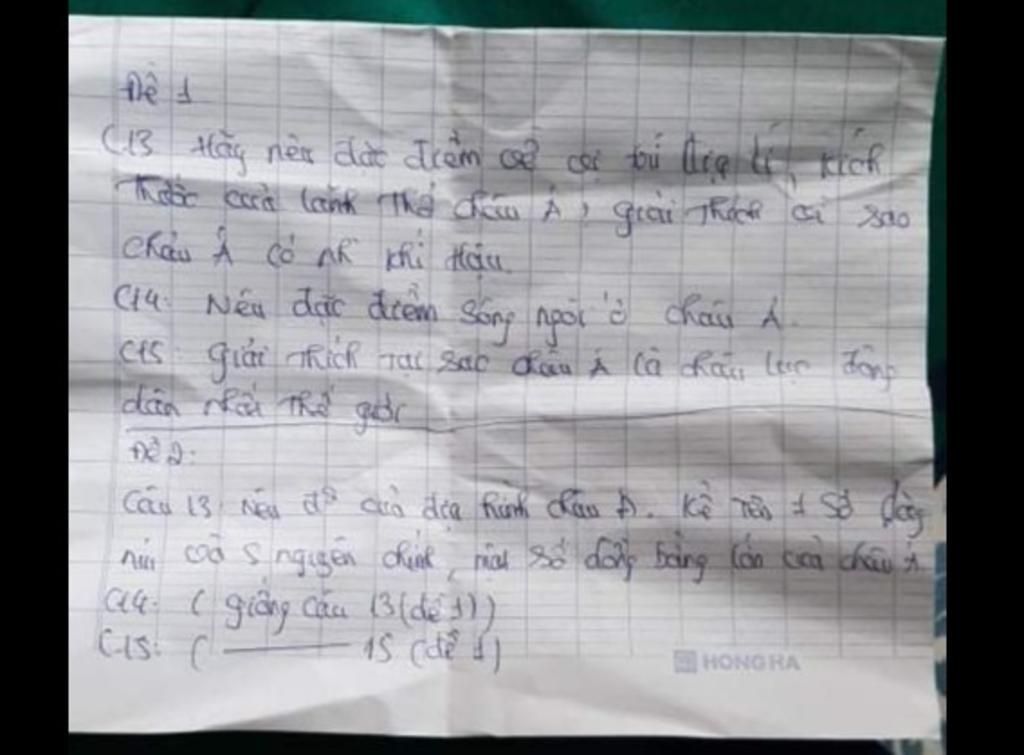 Đề 1
C13 Hãy nêu đặc điểm về vị trí địa lí, kích
thước của lãnh thổ châu Á, giải thích vì sao
châu Á có nh khí hậu.
C14: Nêu đặc điểm sông ngòi ở châu Á.
C15: giải thích tại sao châu Á là châu lục đông
dân nhất thế giới
Đề 2:
Câu 13. Nêu đ² của địa hình châu Á. Kể tên 1 số dãy
núi và S nguyên chính, nêu số đồng bằng lớn của châu Á
C14: (giống câu 13 (đề 1))
C15: ( ——— 15 (đề 1)
HONG HA